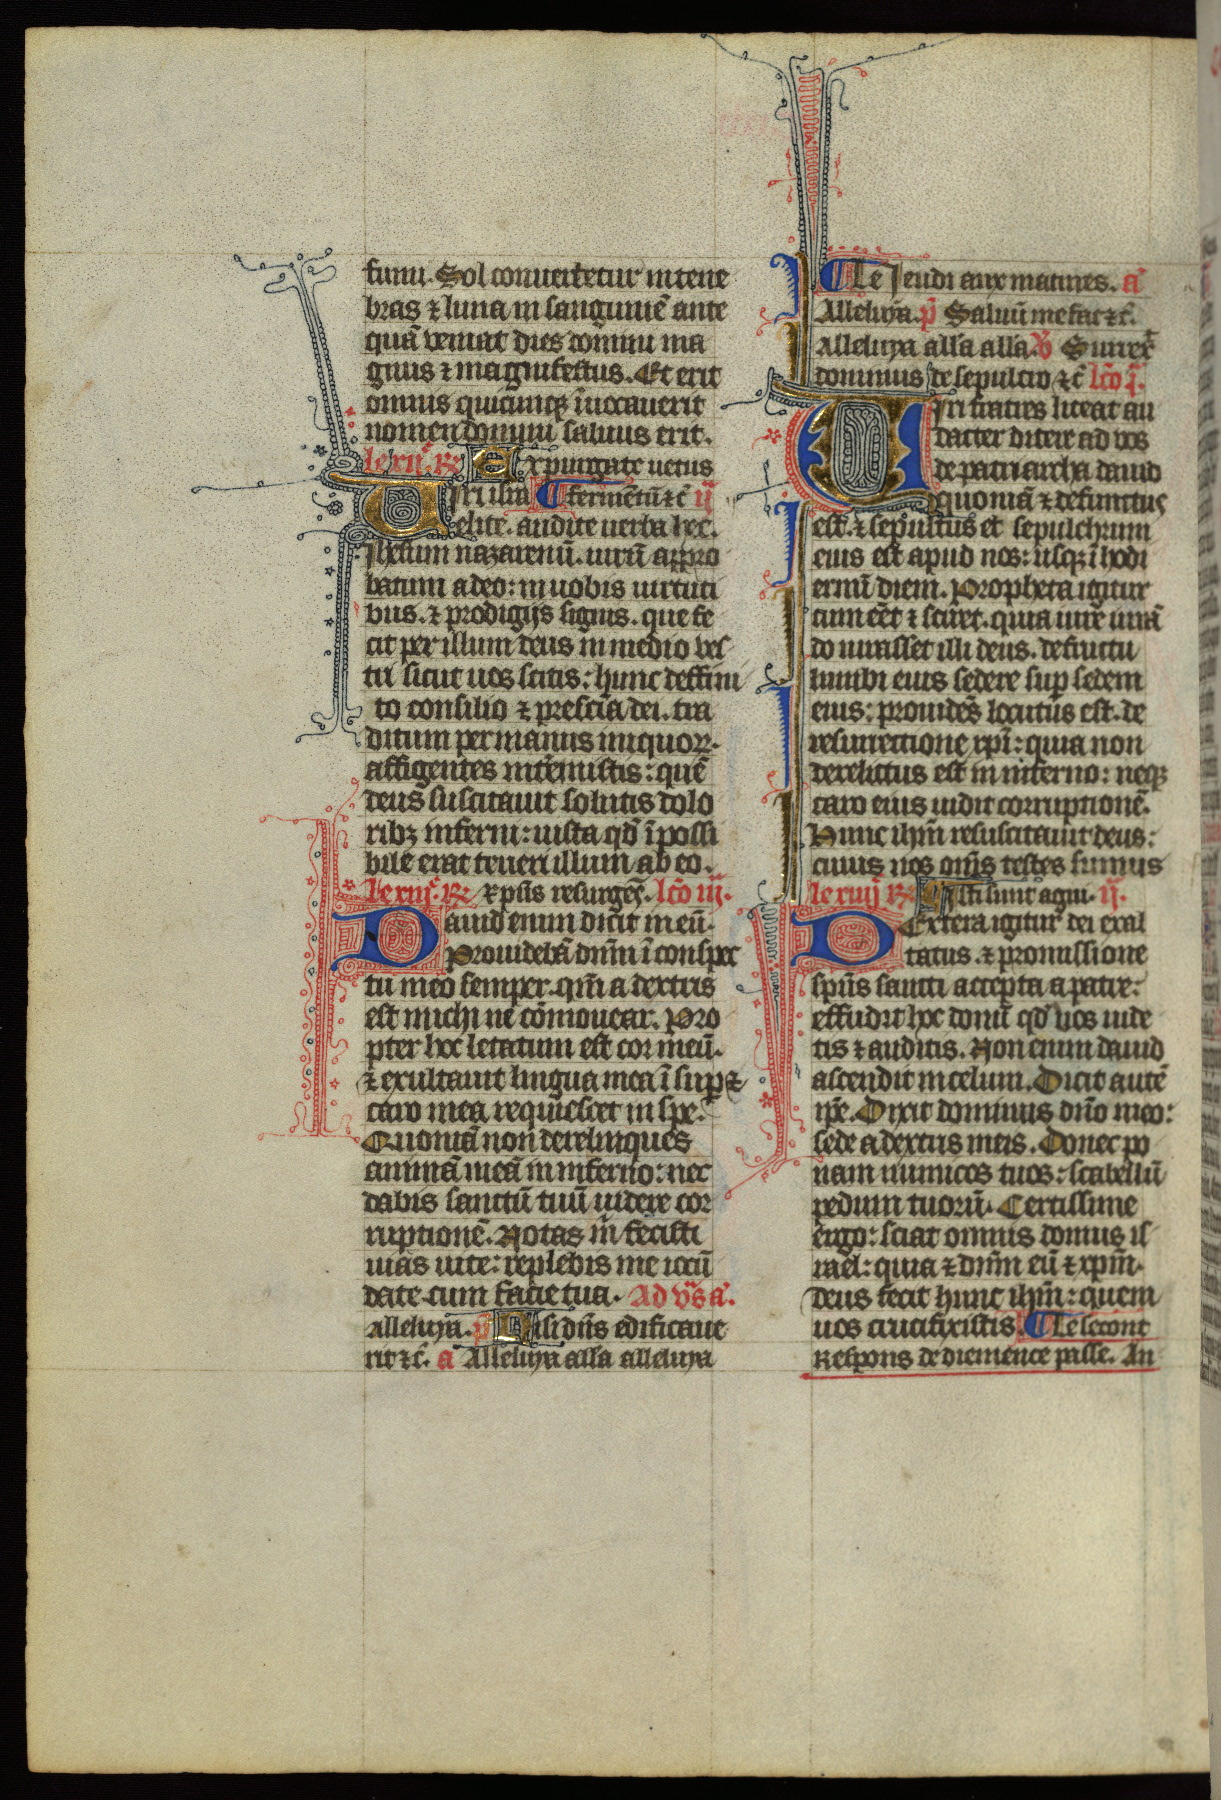 fumi. Sol conuertetur in tene
bras ⁊ luna in sanguinē ante
quā ueniat dies domini ma
gnus ⁊ magnifestus. Et erit
omnis quicunqꝫ īuocauerit
nomen domini saluus erit.
le xijᵉ. ℟ Expurgate uetus
Viri isra ¶ fermētū ⁊c̄ ij
elite. audite uerba hec.
Jhesum nazarenū. uirū appro
batum a deo: in uobis uirtuti
bus. ⁊ prodigijs signis. que fe
cit per illum deus in medio ves
tri sicut uos scitis: hunc deffini
to consilio ⁊ presciā dei. tra
ditum per manus iniquoꝝ.
affigentes intemistis: quē
deus suscitauit solutis dolo
ribꝫ inferni: iuxta qđ īpossi
bile erat teneri illum ab eo.
le xiijᵉ. ℟ xp̄s resurgēs. lc̄o iij.
Dauid enim dicit in eū.
Prouidebā dn̄m ī conspec
tu meo semper. qm̄ a dextris
est michi ne cōmouear. Pro
pter hoc letatum est cor meū.
⁊ exultauit lingua mea ī sup ⁊
caro mea requiescet in spe.
Quoniā non derelinques
animā meā in inferno: nec
dabis sanctū tuū uidere cor
ruptionē. Notas m̄ fecisti
uias uite: replebis me iocū
ditate cum facie tua. Ad v̄s a.
Alleluya. p̄ Nisi dn̄s edificaue
rit ⁊c̄. a Alleluya alla alleluya
¶ Le Jeudi aux matines. a
Alleluya. p̄ Saluū me fac ⁊c̄.
Alleluya alla alla. ℣ Surrex
dominus de sepulcro ⁊c̄ lc̄o j.
Viri fratres liceat au
dacter dicere ad vos
de patriarcha dauid
quoniā ⁊ defunctus
est. ⁊ sepultus et sepulchrum
eius est apud nos: usqꝫ ī hodi
ernū diem. Propheta igitur
cum eēt ⁊ sciret. quia iure iurā
do iurasset illi deus. de fructu
lumbi eius sedere sup sedem
eius: prouidēs locutus est. de
resurrectione xp̄i: quia non
derelictus est in inferno: neqꝫ
caro eius uidit corruptionē.
Hunc ih̄m resuscitauit deus:
cuius nos om̄s testes sumus
le xiiij ℟ Isti sunt agni. ij.
Dextera igitur dei exal
tatus. ⁊ promissione
sp̄us sancti accepta a patre:
effudit hoc donū qđ vos uide
tis ⁊ auditis. Non enim dauid
ascendit in celum. Dicit autē
ip̄e. Dixit dominus dn̄o meo:
sede a dextris meis. Donec po
nam inimicos tuos: scabellū
pedum tuorū. Certissime
ergo: sciat omnis domus is
rael: quia ⁊ dn̄m eū ⁊ xp̄m.
deus fecit hunc ih̄m: quem
uos crucifixistis. ¶ Le secont
Respons de diemence passe. An